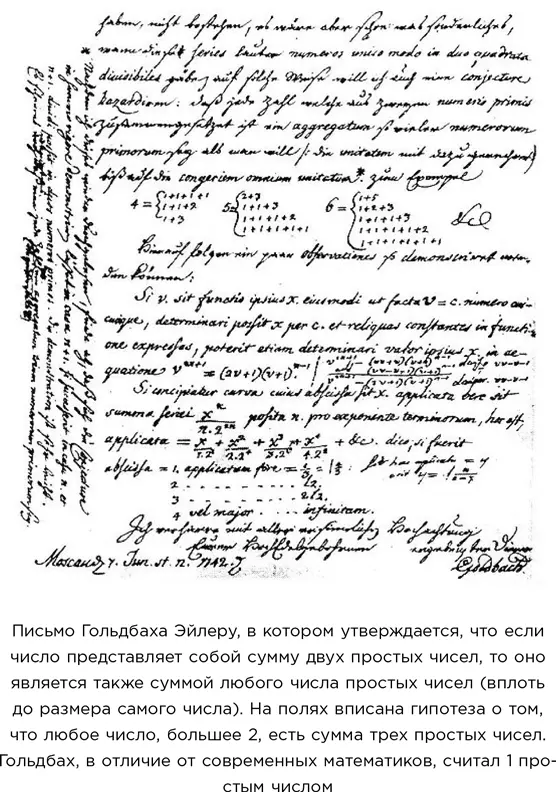 haben, nicht bestehen, es wäre aber schon was sonderliches,
wann diese series lauter numeros unico modo in duo quadrata
divisibiles gäbe; auf solche Weise will ich auch eine conjecture
hazardiren: daß jede Zahl welche aus zweyen numeris primis
zusammengesetzet ist ein aggregatum so vieler numerorum
primorum sey als man will (die unitatem mit dazu gerechnet)
biß auf die congeriem omnium unitatum* zum Exempel
4 = { 1+1+1+1 1+1+2 1+3 5 = { 2+3 1+1+3 1+1+1+2 1+1+1+1+1 6 = { 1+5 1+2+3 1+1+1+3 1+1+1+1+2 1+1+1+1+1+1 &c
Hierauf folgen ein paar observationes so demonstriret wer-
den können:
Si v. sit functio ipsius x. eiusmodi ut facta v = c. numero cui-
cunque, determinari possit x per c. et reliquas constantes in functi-
one expressas, poterit etiam determinari valor ipsius x. in ae-
quatione v²ⁿ⁺¹ = (2v+1)(v+1)ⁿ⁻¹
Si concipiatur curva cuius abscissa sit x. applicata vero sit
summa seriei xⁿ/n.2²ⁿ posita n. pro exponente terminorum, hoc est,
applicata = x/1.2² + x²/2.2⁴ + x³/3.2⁶ + x⁴/4.2⁸ + &c. dico, si fuerit
abscissa = 1. applicatam fore =
2 . . . . l2.
3 . . . . 2l2.
4 vel major . . . infinitam.
Ich verharre mit aller Hochachtung
Moscau d. 7. Jun. st. n. 1742. Goldbach.
Nachdem ich dieses wieder durchgelesen, finde ich daß sich die conjecture
in summo rigore demonstriren läßet in casu n+1, si successerit in casu n et
n+1 dividi possit in duos numeros primos. Die demonstration ist sehr leicht.
Es scheinet aggregatum trium numerorum primorum sey.
Письмо Гольдбаха Эйлеру, в котором утверждается, что если
число представляет собой сумму двух простых чисел, то оно
является также суммой любого числа простых чисел (вплоть
до размера самого числа). На полях вписана гипотеза о том,
что любое число, большее 2, есть сумма трех простых чисел.
Гольдбах, в отличие от современных математиков, считал 1 про-
стым числом